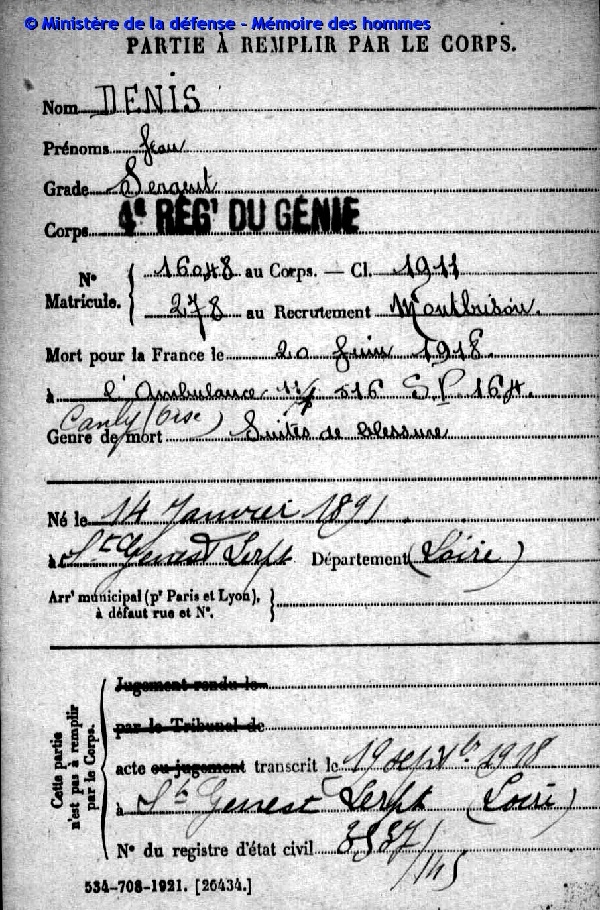 © Ministère de la défense - Mémoire des hommes
PARTIE À REMPLIR PAR LE CORPS.
Nom DENIS
Prénoms Jean
Grade Sergent
Corps 4e RÉGt DU GÉNIE
No Matricule. { 16048 au Corps. — Cl. 1911
278 au Recrutement Montbrison.
Mort pour la France le 20 Juin 1918.
à l'Ambulance 516 S.P. 164.
Canly (Oise)
Genre de mort Suites de blessure
Né le 14 Janvier 1891
à St Genest Lerpt Département (Loire)
Arrt municipal (pr Paris et Lyon), }
à défaut rue et No.
Cette partie n'est pas à remplir par le Corps. {
Jugement rendu le
par le Tribunal de
acte ou jugement transcrit le 19 septbre 1918
à St Genest Lerpt (Loire)
No du registre d'état civil
534-708-1921. [26434.]